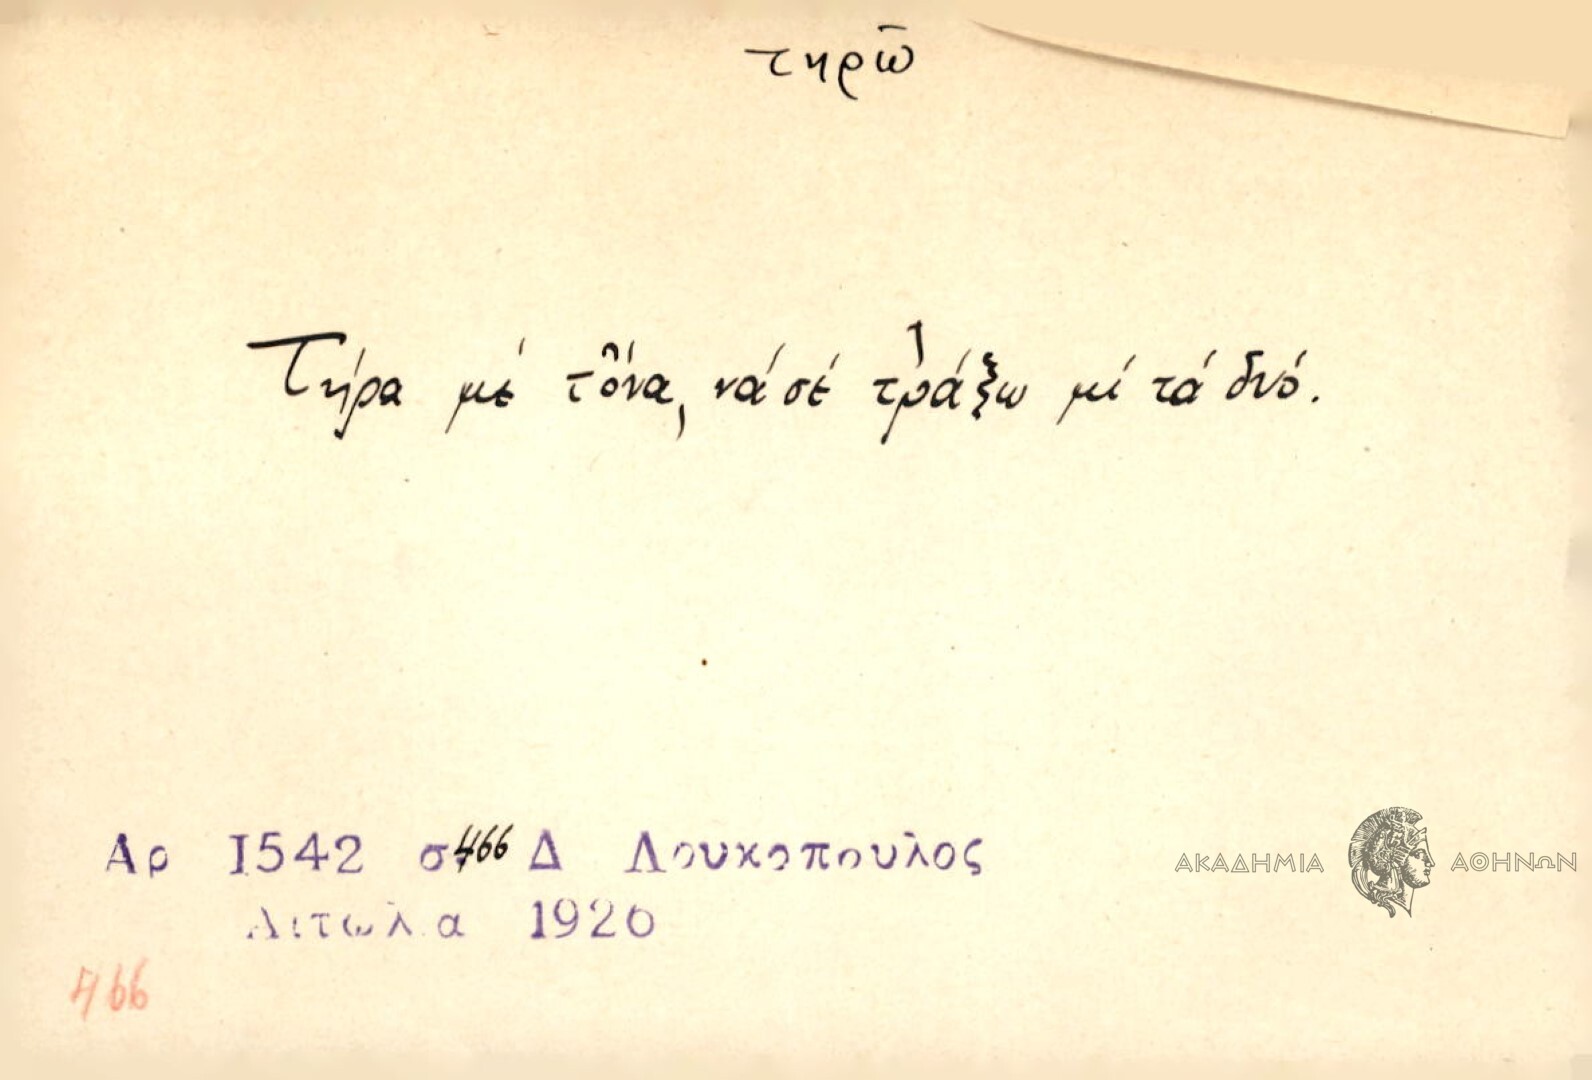 τηρῶ
Τήρα μέ τὄνα, νά σέ τ'ράξω μί τά δυό.
Αρ 1542 σ 466 Δ Λουκοπουλος
Αιτωλια 1920
466
ΑΚΑΔΗΜΙΑ ΑΘΗΝΩΝ